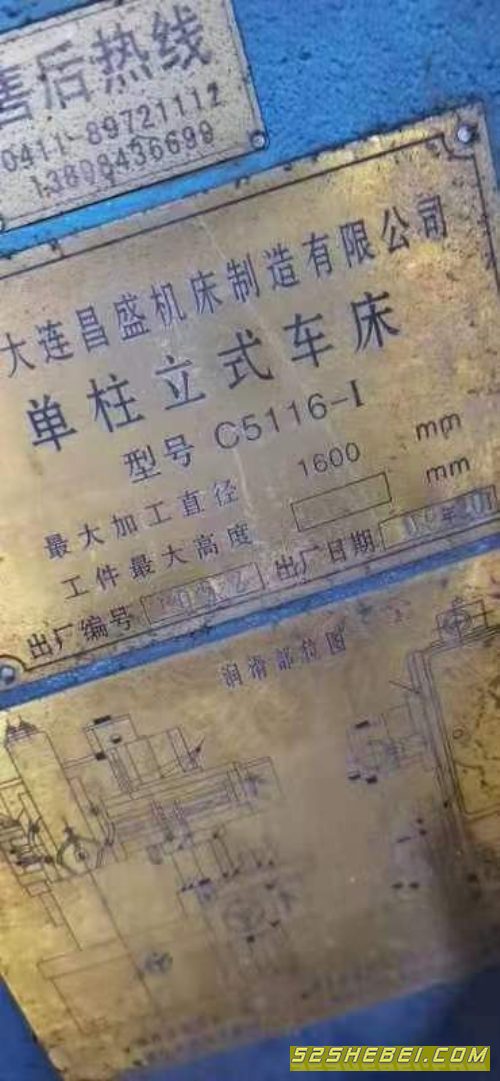 售后热线
0411-89721112
13608436699
大连昌盛机床制造有限公司
单柱立式车床
型号 C5116-I
最大加工直径 1600 mm
工件最大高度 mm
出厂编号 出厂日期 年
润滑部位图
52SHEBEI.COM